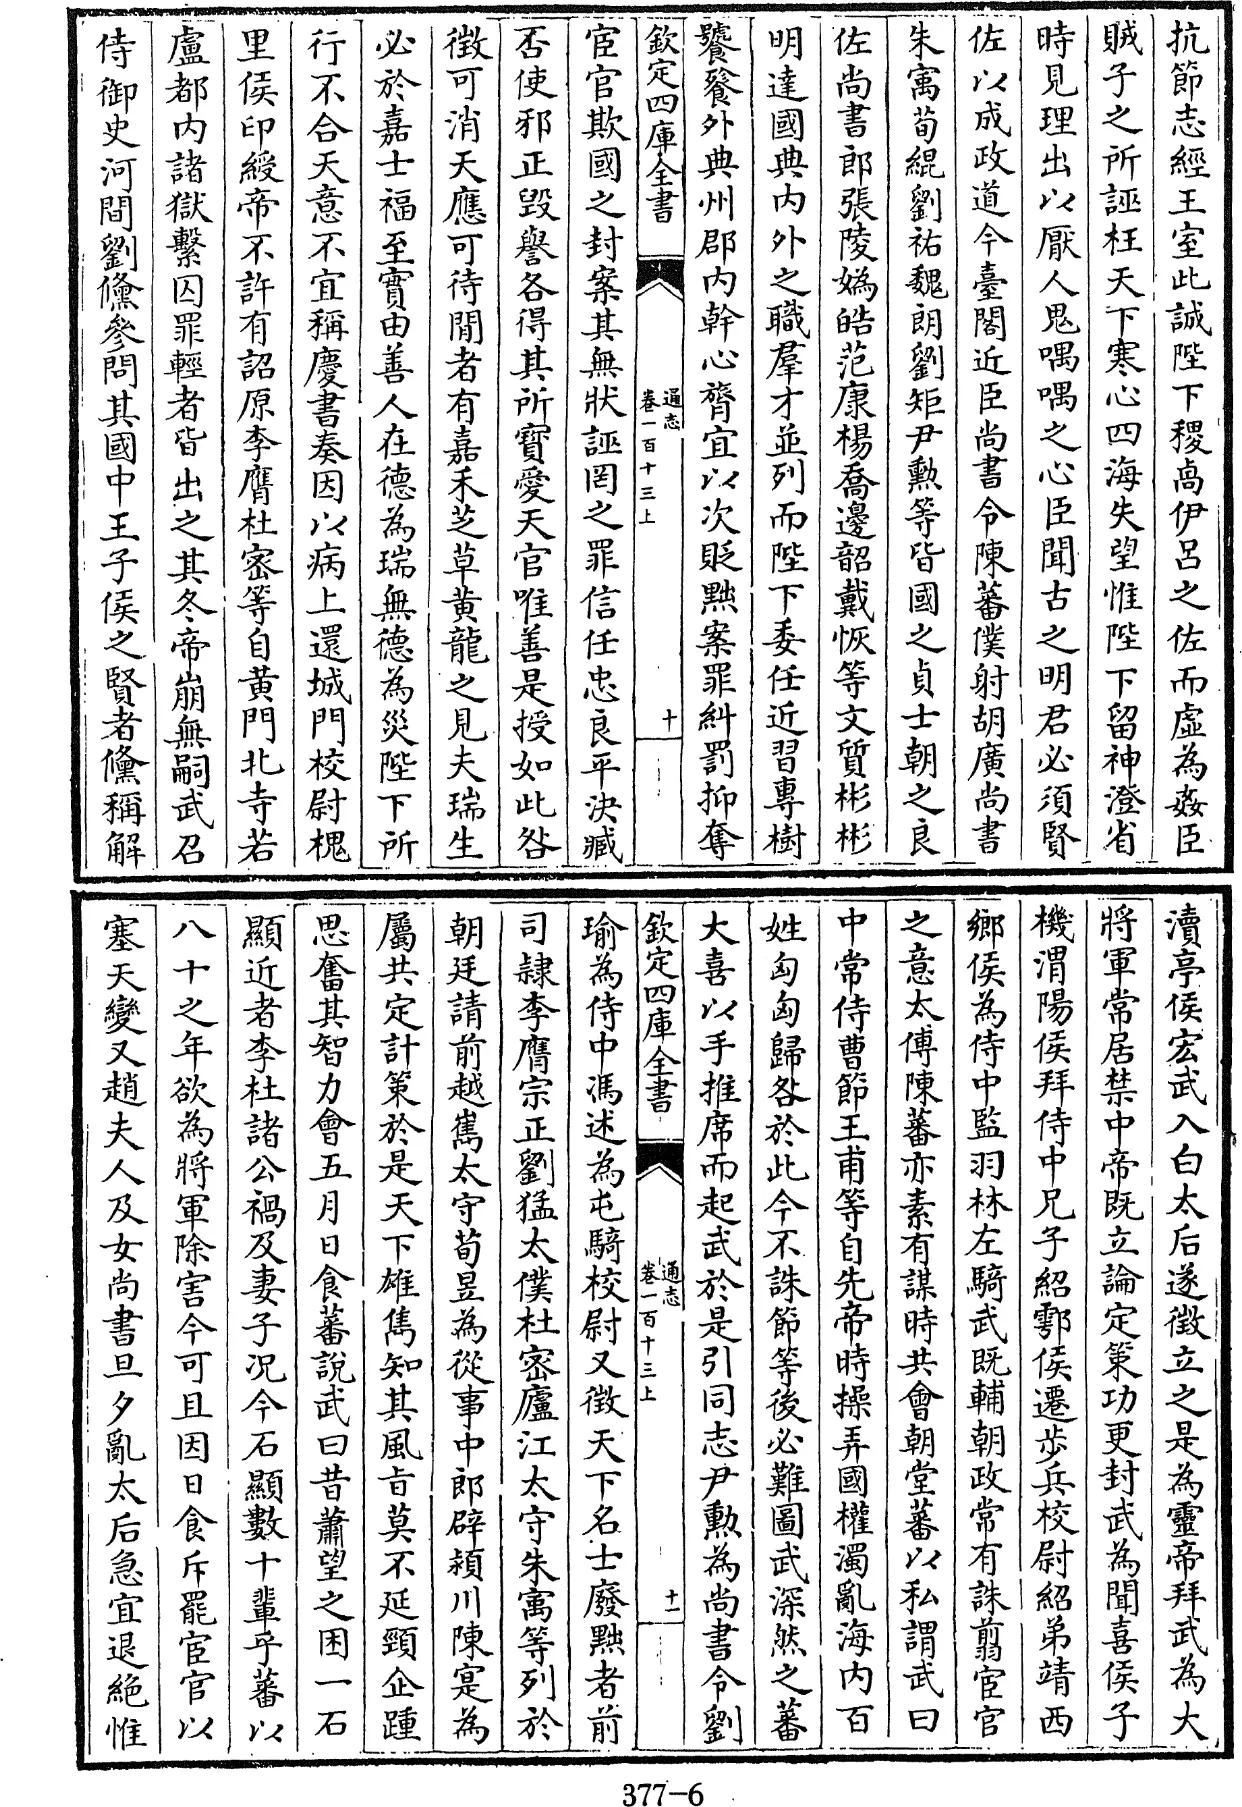 抗節志經王室此誠陛下稷卨伊呂之佐而虛為姦臣
賊子之所誣枉天下寒心四海失望惟陛下留神澄省
時見理出以厭人鬼喁喁之心臣聞古之明君必須賢
佐以成政道今臺閣近臣尚書令陳蕃僕射胡廣尚書
朱寓荀緄劉祐魏朗劉矩尹勲等皆國之貞士朝之良
佐尚書郎張陵媯皓范康楊喬邊韶戴恢等文質彬彬
明達國典內外之職羣才並列而陛下委任近習專樹
饕餮外典州郡內幹心膂宜以次貶黜案罪糾罰抑奪
欽定四庫全書
通志
卷一百十三上
十
宦官欺國之封案其無狀誣罔之罪信任忠良平決臧
否使邪正毀譽各得其所寳愛天官唯善是授如此咎
徵可消天應可待間者有嘉禾芝草黃龍之見夫瑞生
必於嘉士福至實由善人在德為瑞無德為災陛下所
行不合天意不宜稱慶書奏因以病上還城門校尉槐
里侯印綬帝不許有詔原李膺杜密等自黃門北寺若
盧都內諸獄繫囚罪輕者皆出之其冬帝崩無嗣武召
侍御史河間劉儵參問其國中王子侯之賢者儵稱解
瀆亭侯宏武入白太后遂徵立之是為靈帝拜武為大
將軍常居禁中帝既立論定策功更封武為聞喜侯子
機渭陽侯拜侍中兄子紹鄠侯遷步兵校尉紹弟靖西
鄉侯為侍中監羽林左騎武既輔朝政常有誅翦宦官
之意太傅陳蕃亦素有謀時共會朝堂蕃以私謂武曰
中常侍曹節王甫等自先帝時操弄國權濁亂海內百
姓匈匈歸咎於此今不誅節等後必難圖武深然之蕃
大喜以手推席而起武於是引同志尹勲為尚書令劉
欽定四庫全書
通志
卷一百十三上
十一
瑜為侍中馮述為屯騎校尉又徵天下名士廢黜者前
司隸李膺宗正劉猛太僕杜密廬江太守朱寓等列於
朝廷請前越嶲太守荀昱為從事中郎辟潁川陳寔為
屬共定計策於是天下雄雋知其風旨莫不延頸企踵
思奮其智力會五月日食蕃說武曰昔蕭望之困一石
顯近者李杜諸公禍及妻子況今石顯數十輩乎蕃以
八十之年欲為將軍除害今可且因日食斥罷宦官以
塞天變又趙夫人及女尚書旦夕亂太后急宜退絕惟
377-6